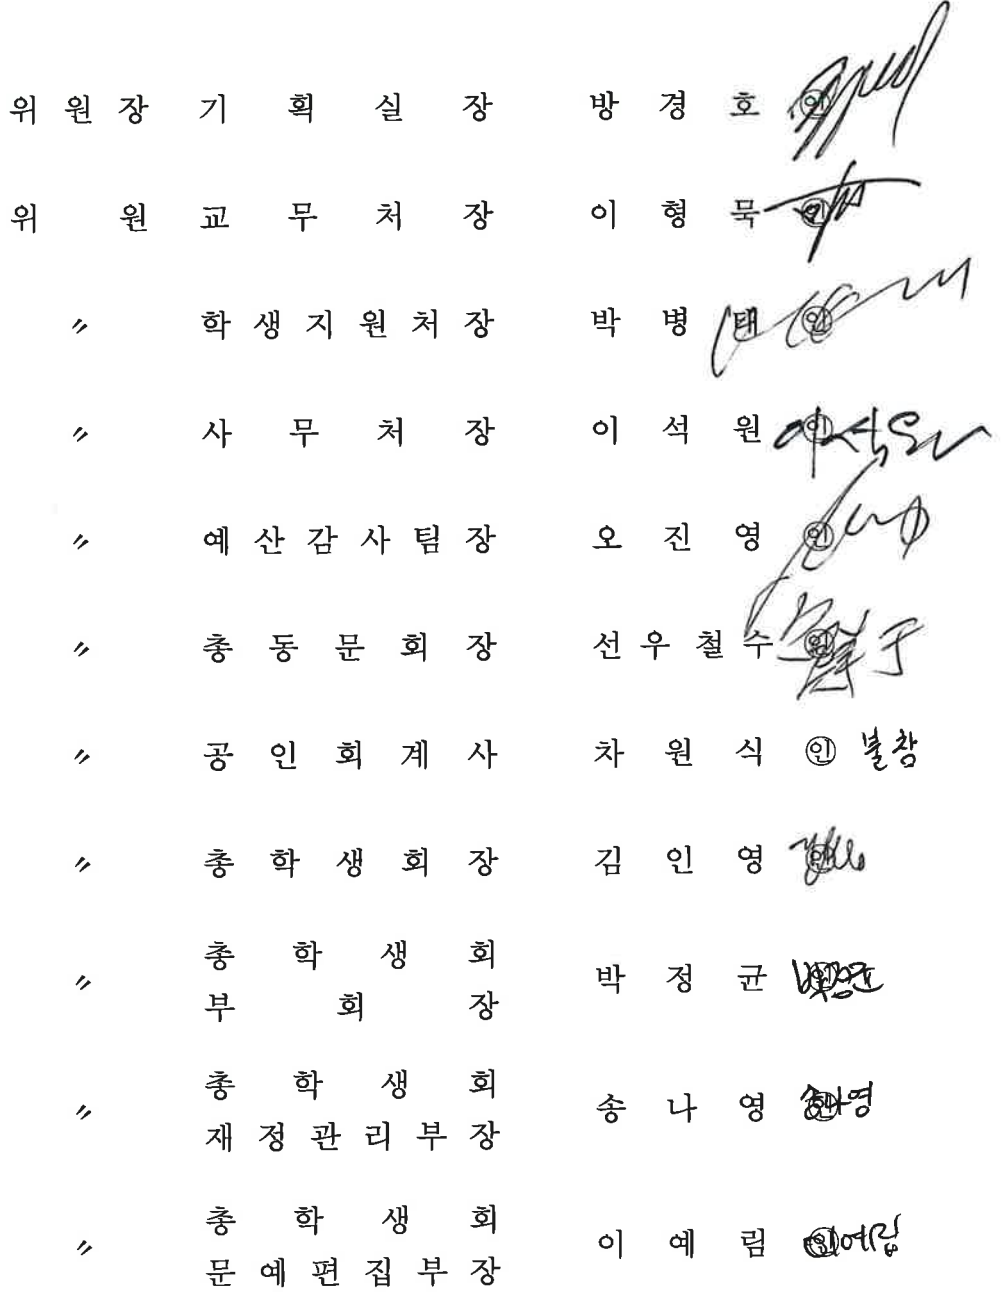 위 원 장 기 획 실 장 방 경 호 ㊞
위 원 교 무 처 장 이 형 묵 ㊞
〃 학 생 지 원 처 장 박 병 태 ㊞
〃 사 무 처 장 이 석 원 ㊞ 이석원
〃 예 산 감 사 팀 장 오 진 영 ㊞
〃 총 동 문 회 장 선 우 철 수 ㊞
〃 공 인 회 계 사 차 원 식 ㊞ 불참
〃 총 학 생 회 장 김 인 영 ㊞
〃 총 학 생 회
부 회 장 박 정 균 ㊞ 박정균
〃 총 학 생 회
재 정 관 리 부 장 송 나 영 ㊞ 송나영
〃 총 학 생 회
문 예 편 집 부 장 이 예 림 ㊞ 이예림